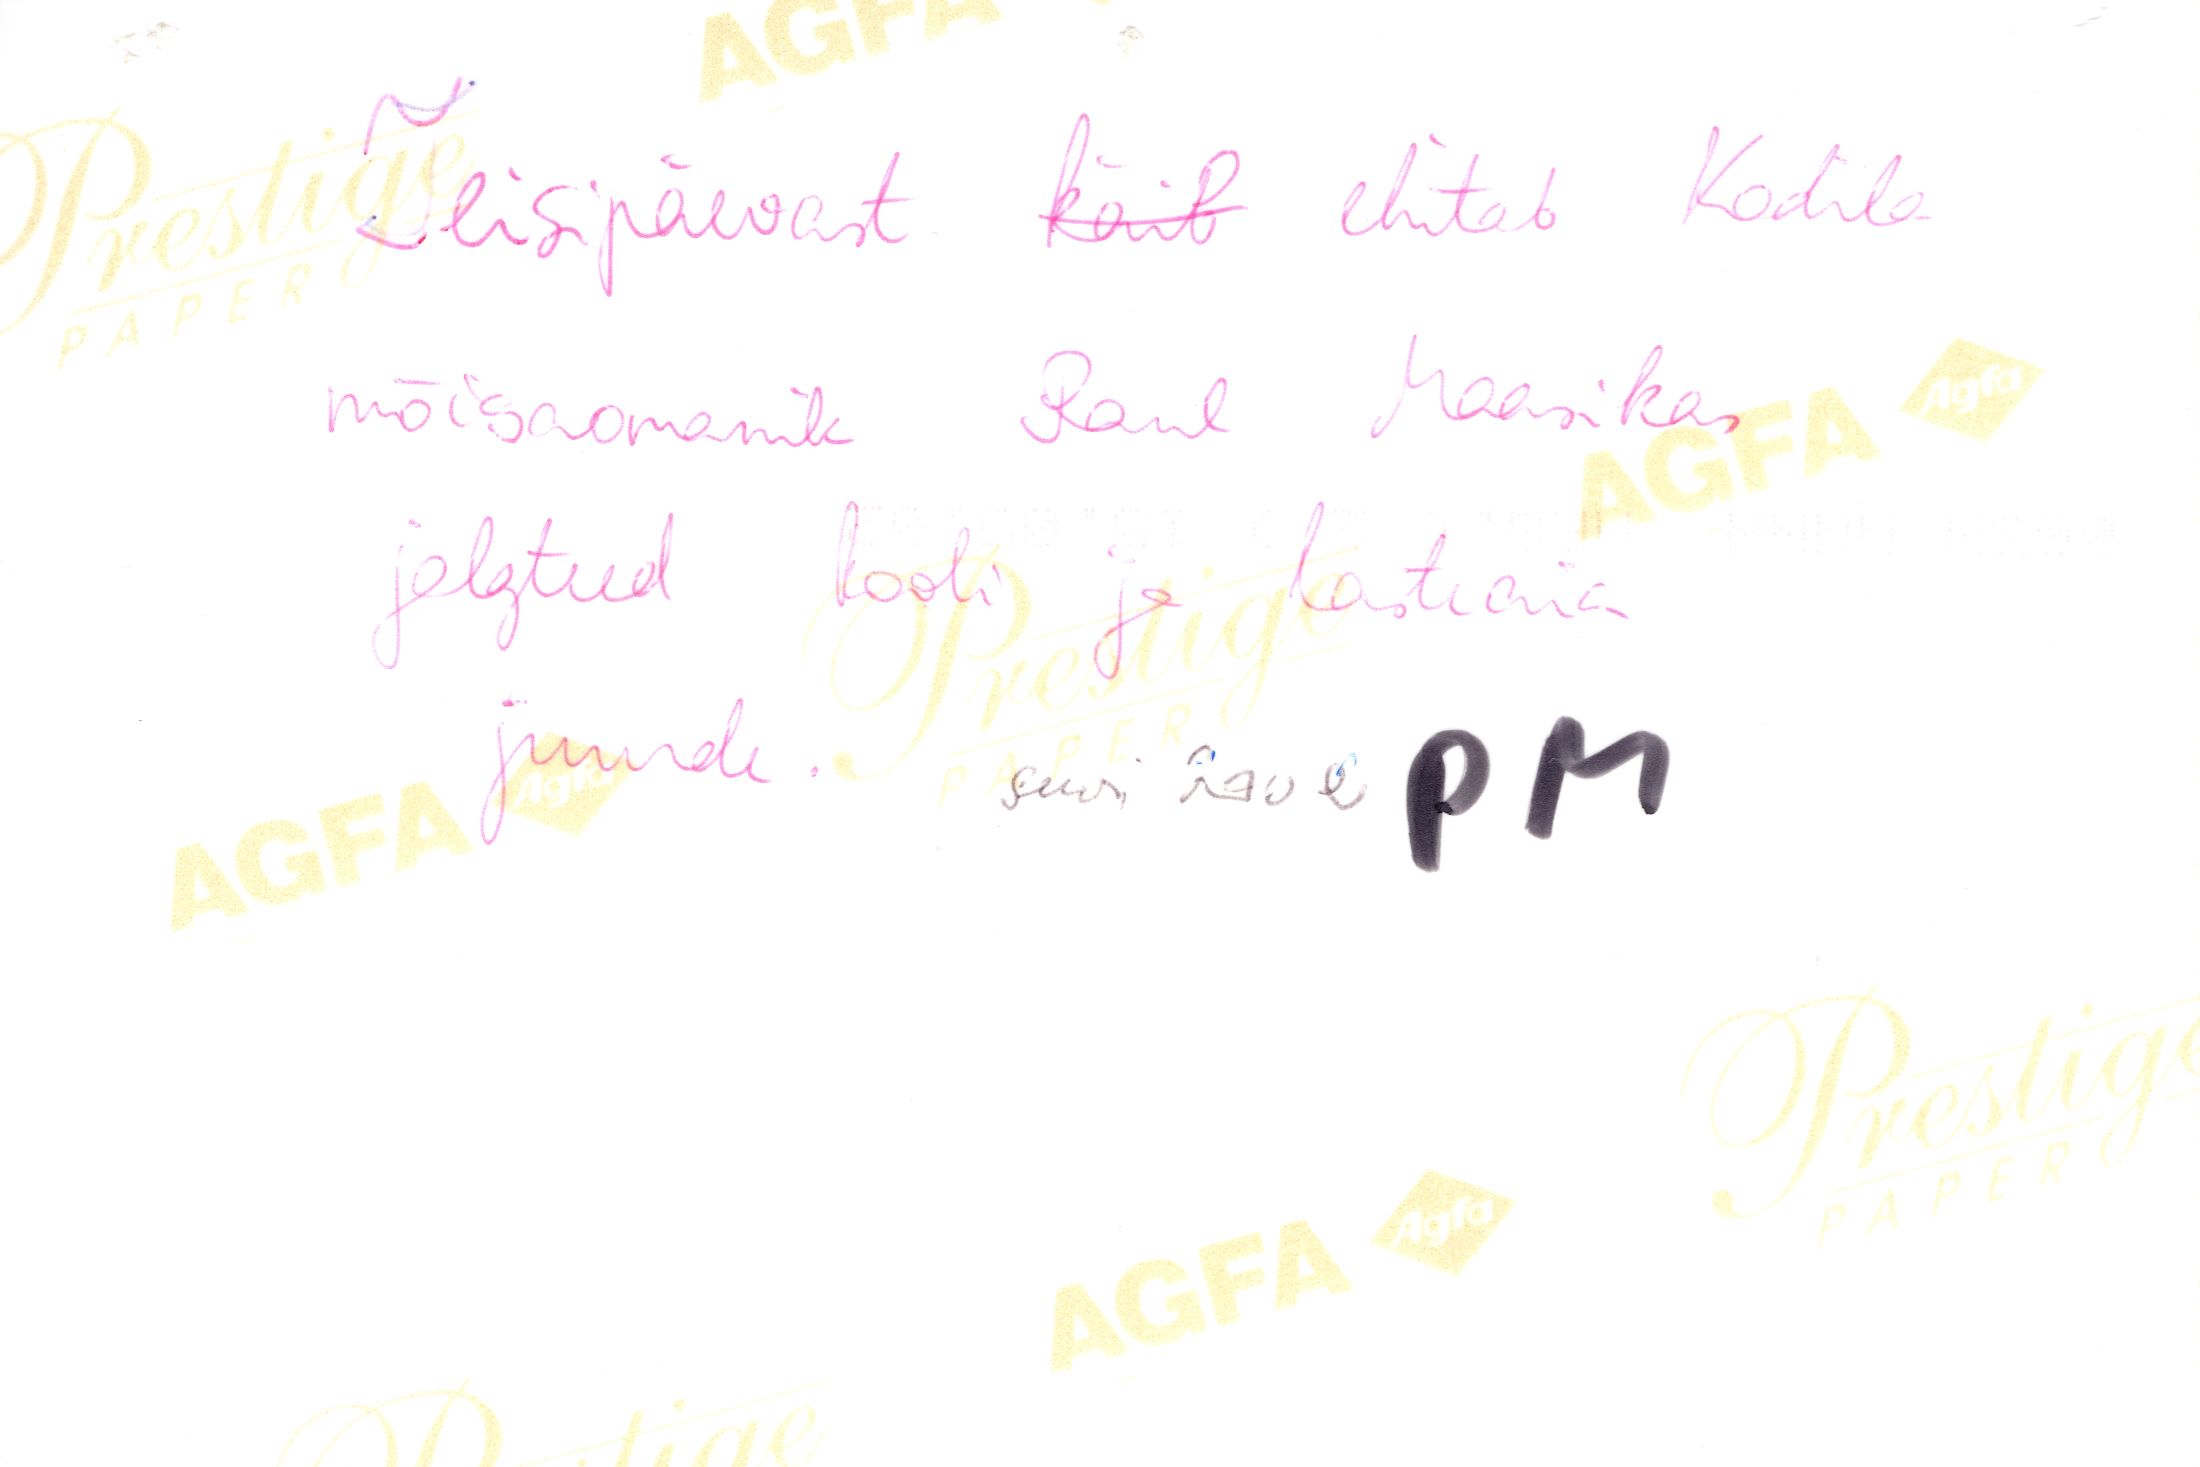 Teisipäevast käib ehitab Kodila
mõisaomanik Raul Maasikas
jalgteed kooli ja lasteaia
juurde.
suvi 2002 PM
AGFA
Prestige
PAPER
AGFA Agfa
Prestige
PAPER
AGFA Agfa
Prestige
PAPER
AGFA Agfa
Prestige